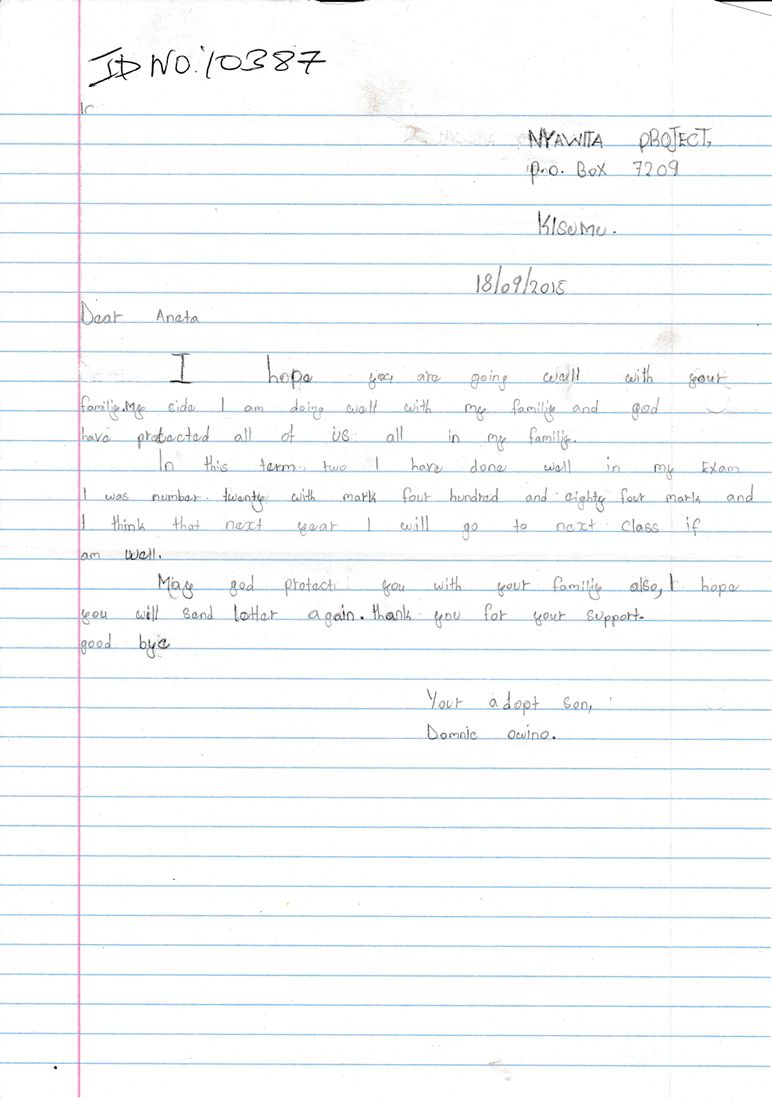 ID NO: 10387
NYAWITA PROJECT,
P.O. Box 7209
KISUMU.
18/09/2015
Dear Aneta
I hope you are going well with your
family. My side I am doing well with my family and god
have protected all of us all in my family.
In this term two I have done well in my Exam
I was number twenty with mark four hundred and eighty four mark and
I think that next year I will go to next class if
am well.
May god protect you with your family also, I hope
you will send letter again. thank you for your support.
good bye
Your adopt son,
Domnic Owino.